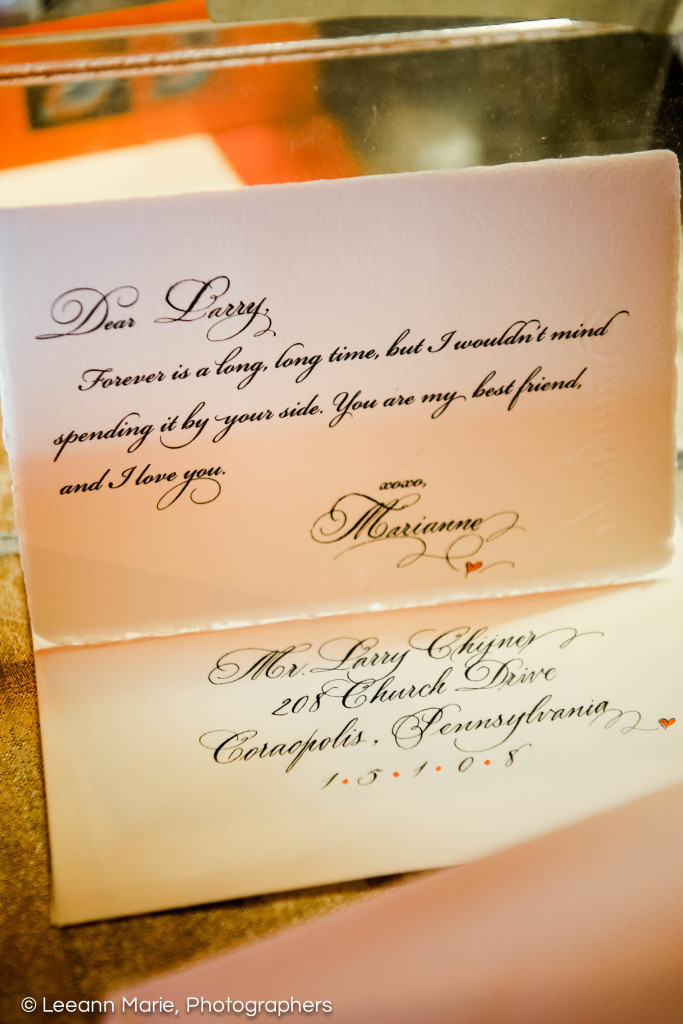 Dear Larry,
Forever is a long, long time, but I wouldn't mind
spending it by your side. You are my best friend,
and I love you.
xoxo,
Marianne
Mr. Larry Chijner
208 Church Drive
Coraopolis, Pennsylvania
1·5·1·0·8
© Leeann Marie, Photographers